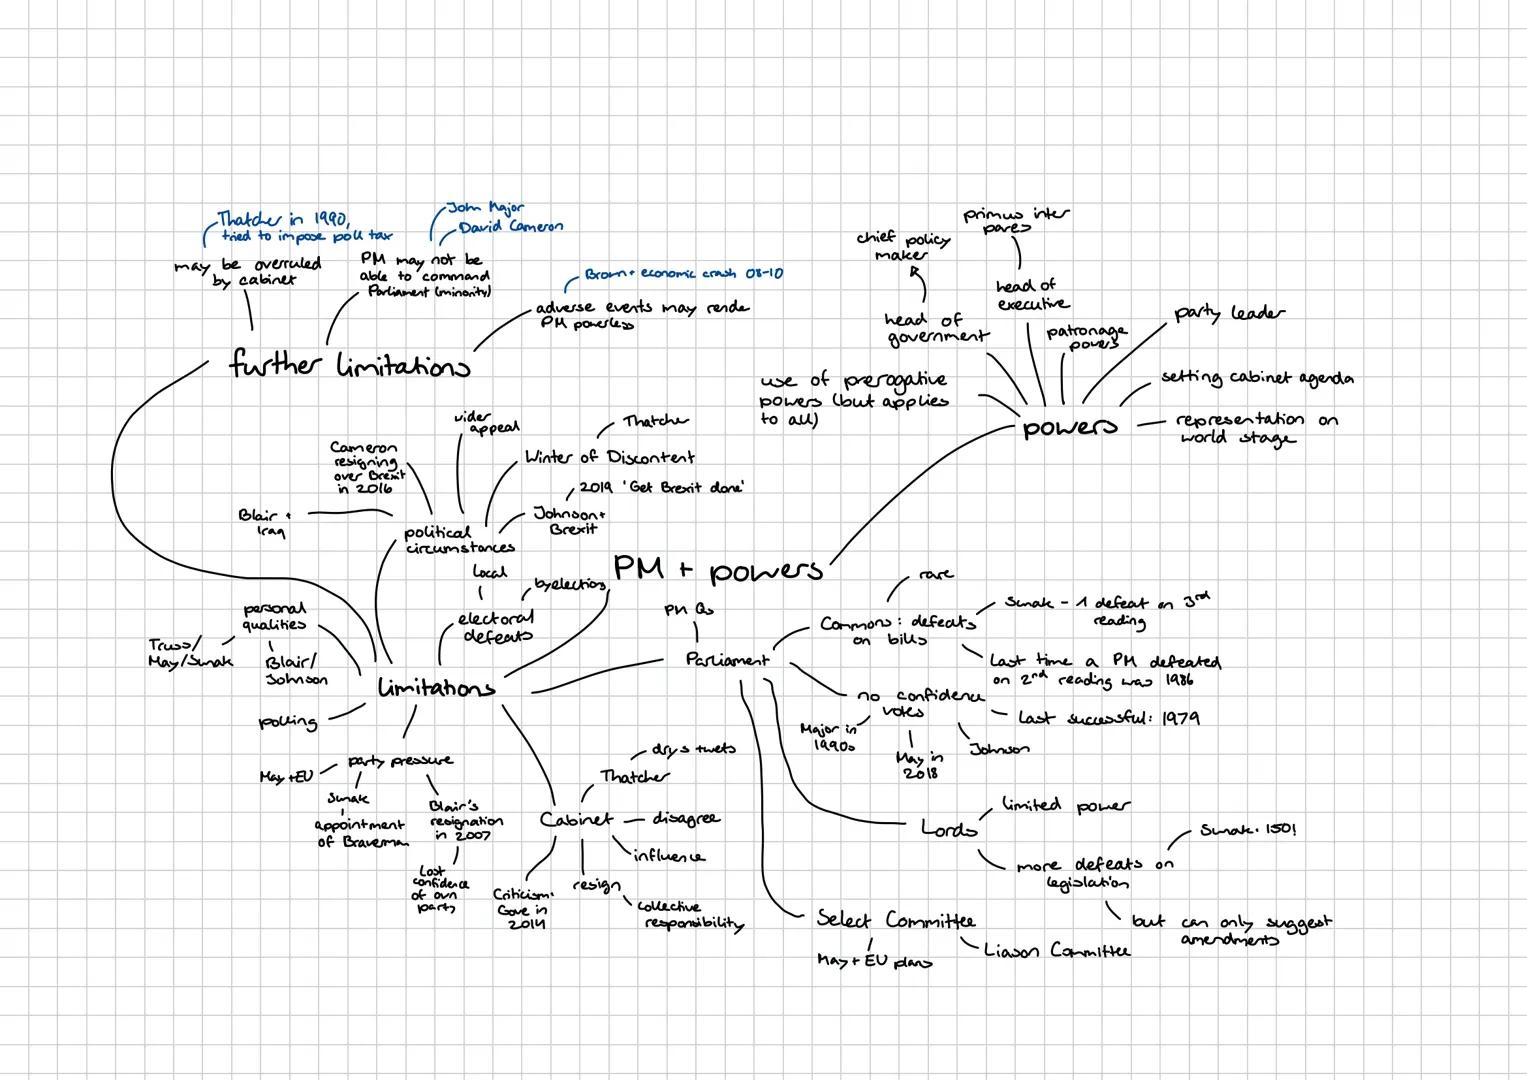 Thatcher in 1990,
tried to impose poll tax
may be overruled
by cabinet
John Major
David Cameron
PM may not be
able to command
Parliament (minority)
Brown + economic crash 08-10
adverse events may rende
PM powerless
further limitations
primus inter
pares
chief policy
maker
head of
executive
head of
government
patronage
powers
party leader
use of prerogative
powers (but applies
to all)
setting cabinet agenda
representation on
world stage
powers
Cameron
resigning
over Brexit
in 2016
wider
appeal
Thatcher
Winter of Discontent
2019 'Get Brexit done'
Johnson +
Brexit
Blair +
Iraq
political
circumstances
PM + powers
local
byelections
electoral
defeats
personal
qualities
Truss/
May/Sunak
Blair/
Johnson
limitations
polling
party pressure
May + EU
Sunak
appointment
of Braverman
Blair's
resignation
in 2007
Lost
confidence
of own
party
Cabinet
Thatcher
drys + wets
disagree
influence
resign
collective
responsibility
Criticism:
Gove in
2014
PM Qs
Parliament
Commons: defeats
on bills
rare
Sunak - 1 defeat on 3rd
reading
Last time a PM defeated
on 2nd reading was 1986
no confidence
votes
Major in
1990s
May in
2018
Johnson
Last successful: 1979
Lords
limited power
more defeats on
legislation
Sunak: 150!
but can only suggest
amendments
Select Committee
May + EU plans
Liason Committee